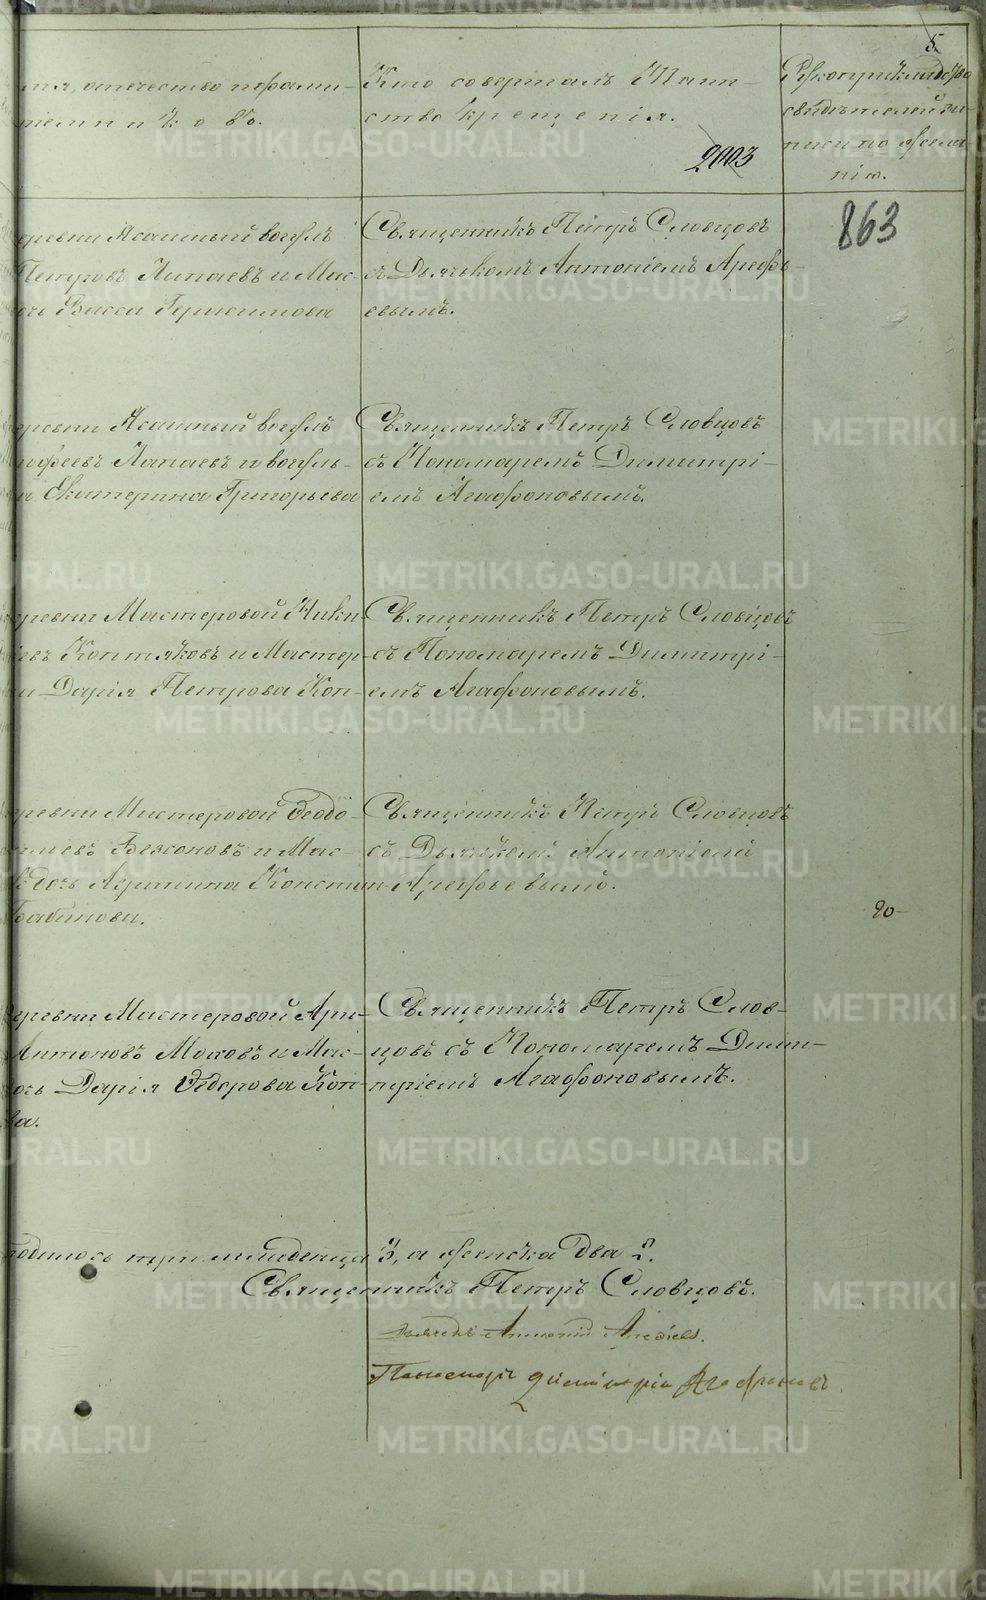 5
мя, отечество и фами-
ніемниковъ.
Кто совершалъ Таин-
ство крещенія.
2003
Рукоприкладство
свидѣтелей за-
писи по жела-
нію.
863
еревни Ясашный вогулъ
Петровъ Лапаевъ и Мас-
Васса Герасимова
Священникъ Петръ Словцовъ
съ Дьячькомъ Антоніемъ Арефь-
евымъ.
еревни Ясашный вогулъ
Лапаевъ и вогуль-
а Екатерина Григорьева
Священникъ Петръ Словцовъ
съ Пономаремъ Димитрі-
емъ Агафоновымъ.
еревни Мастеровой Ники-
евъ Коптяковъ и Мастер-
и Дарія Петрова Коп-
Священникъ Петръ Словцовъ
съ Пономаремъ Димитрі-
емъ Агафоновымъ.
еревни Мастеровой Ѳеодо-
и Мас-
Констан-
Бабинова.
Священникъ Петръ Словцовъ
съ Дьячкомъ Антоніемъ
Арефьевымъ.
20
еревни Мастеровой Ари-
Антоновъ Моховъ и Мас-
Дарія Ѳедорова Коп-
ва.
Священникъ Петръ Слов-
цовъ съ Пономаремъ Дими-
тріемъ Агафоновымъ.
одилось три младенца 3, а женска два 2.
Священникъ Петръ Словцовъ.
Дьячекъ Антоній Арефьев.
Пономарь Димитрій Агафоновъ
METRIKI.GASO-URAL.RU